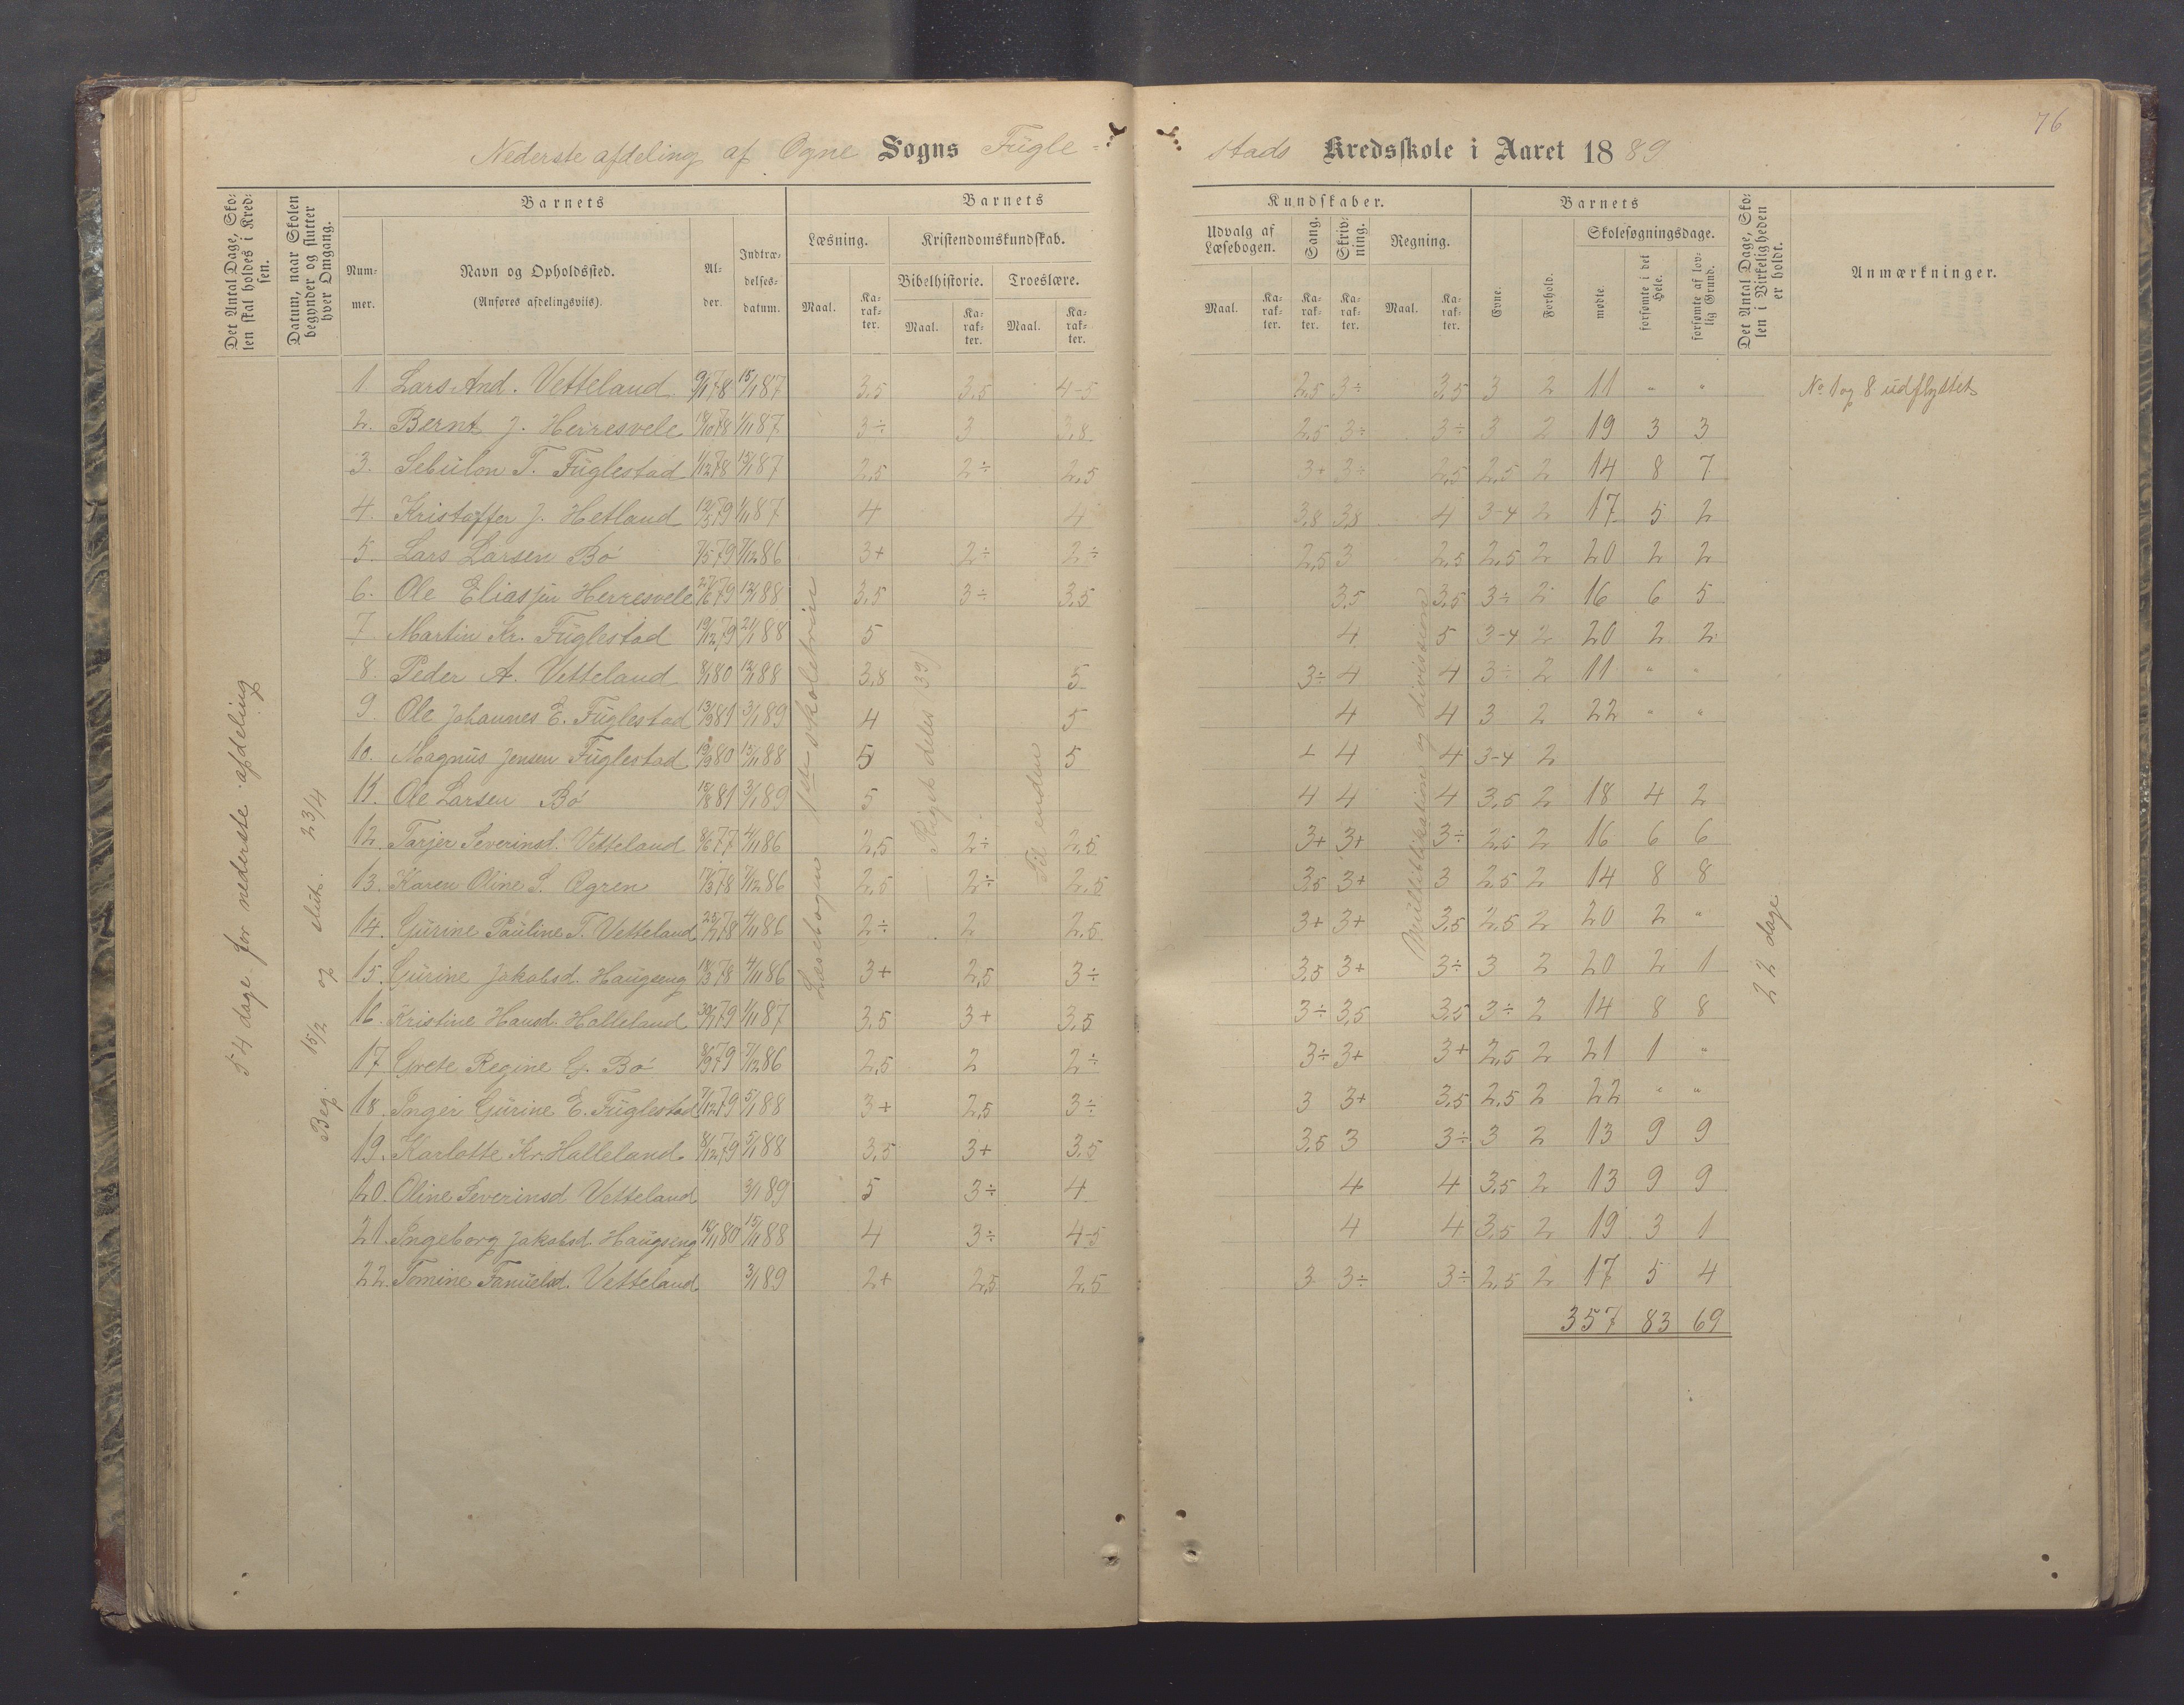 76
Nederste afdeling af Ogne Sogns Fügle-
stads Kredsskole i Aaret 1889
Det Antal Dage, Skolen skal holdes i Kredsen.
Datum, naar Skolen begynder og slutter hver Omgang.
Barnets
Nummer.
Navn og Opholdssted.
(Anføres afdelingsviis).
Alder.
Indtrædelsesdatum.
Barnets
Læsning.
Maal.
Karakter.
Kristendomskundskab.
Bibelhistorie.
Maal.
Karakter.
Troeslære.
Maal.
Karakter.
Kundskaber.
Udvalg af Læsebogen.
Maal.
Karakter.
Sang.
Karakter.
Skrivning.
Karakter.
Regning.
Maal.
Karakter.
Barnets
Evne.
Forhold.
Skolesøgningsdage.
mødte.
forsømte i det Hele.
forsømte af lovlig Grund.
Det Antal Dage, Skolen i Virkeligheden er holdt.
Anmærkninger.
54 dage for nederste afdeling
Beg. 15/2 og slut. 23/4
Læsebogen 1ste skoletrin
Riget deles 39)
Til enden
og division
22 dage
1. Lars And. Vetteland 9/1 78 15/11 87 3,5 3,5 4-5 2,5 3÷ 3,5 3 2 11 " " No 1 og 8 udflyttet
2. Bernt J. Herresvele 18/10 78 1/11 87 3÷ 3 3,8 2,5 3÷ 3÷ 3 2 19 3 3
3. Sebülon T. Füglestad 1/12 78 15/11 87 2,5 2÷ 2,5 3+ 3÷ 2,5 2,5 2 14 8 7
4. Kristoffer J. Hetland 12/5 79 1/11 87 4 4 3,8 3,8 4 3-4 2 17 5 2
5. Lars Larsen Bø 7/5 79 7/12 86 3+ 2÷ 2÷ 2,5 3 2,5 2,5 2 20 2 2
6. Ole Elias Herresvele 27/6 79 12/1 88 3,5 3÷ 3,5 3,5 3,5 3÷ 2 16 6 5
7. Martin Kr. Füglestad 19/12 79 21/1 88 5 4 5 3-4 2 20 2 2
8. Peder A. Vetteland 8/1 80 12/1 88 3,8 5 3÷ 4 4 3÷ 2 11 " "
9. Ole Johannes E. Füglestad 13/3 81 3/1 89 4 5 4 4 3 2 22 " "
10. Magnüs Jensen Füglestad 19/9 80 15/11 88 5 5 4 4 4 3-4 2
11. Ole Larsen Bø 15/8 81 3/1 89 5 4 4 4 3,5 2 18 4 2
12. Tarjer Severinsd. Vetteland 8/6 77 4/11 86 2,5 2÷ 2,5 3+ 3+ 3÷ 2,5 2 16 6 6
13. Karen Oline S. Ogren 17/3 78 7/12 86 2,5 2÷ 2,5 3,5 3+ 3 2,5 2 14 8 8
14. Gürine Paüline T. Vetteland 25/7 78 4/11 86 2÷ 2 2,5 3+ 3+ 3,5 2,5 2 20 2 "
15. Gürine Jakobsd. Haügseng 18/3 78 4/11 86 3+ 2,5 3÷ 3,5 3+ 3÷ 3 2 20 2 1
16. Kristine Hansd. Halleland 30/7 79 1/11 87 3,5 3+ 3,5 3÷ 3,5 3,5 3÷ 2 14 8 8
17. Grete Regine G. Bø 8/9 79 7/12 86 2,5 2 2÷ 3÷ 3+ 3+ 2,5 2 21 1 "
18. Inger Gürine E. Füglestad 7/12 79 5/1 88 3+ 2,5 3÷ 3 3+ 3,5 2,5 2 22 " "
19. Karlotte Kr. Halleland 8/12 79 5/1 88 3,5 3+ 3,5 3,5 3 3÷ 3 2 13 9 9
20. Oline Severinsd Vetteland 3/1 89 5 3÷ 4 4 4 3,5 2 13 9 9
21. Ingeborg Jakobsd. Haügseng 16/11 80 15/11 88 4 3÷ 4-5 4 4 3,5 2 19 3 1
22. Tomine Tanüelsd. Vetteland 3/1 89 2+ 2,5 2,5 3 3÷ 3÷ 2,5 2 17 5 4
357 83 69